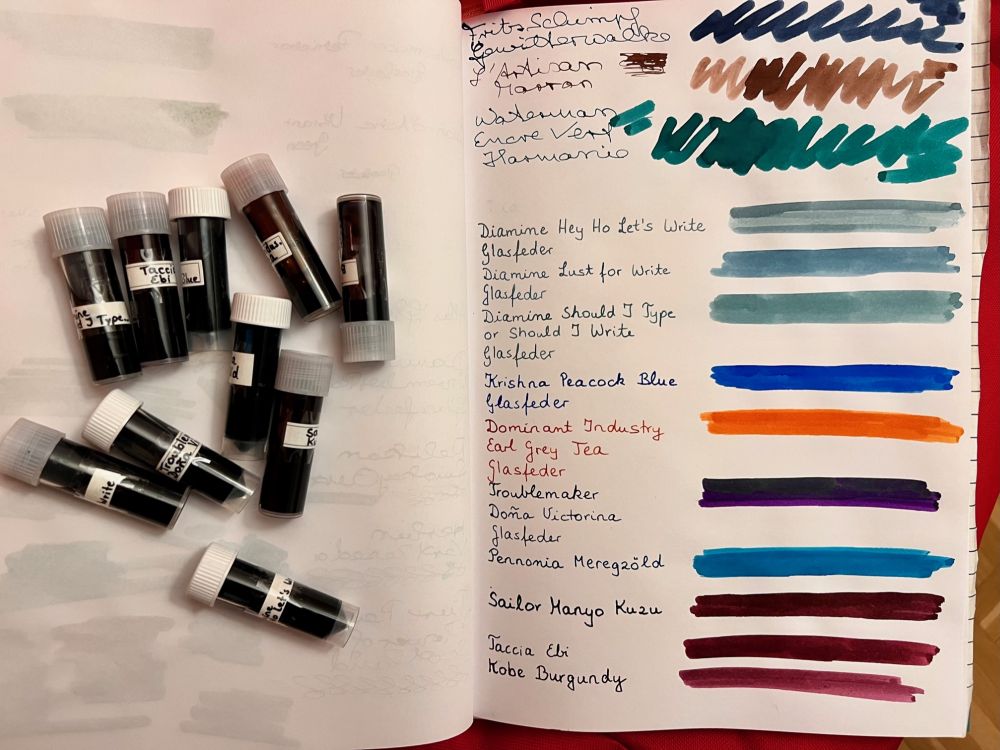 Fritz Schimpf
Gewitterwolke
L'Artisan
Marron
Waterman
Encre Vert
Harmonie
Diamine Hey Ho Let's Write
Glasfeder
Diamine Lust for Write
Glasfeder
Diamine Should I Type
or Should I Write
Glasfeder
Krishna Peacock Blue
Glasfeder
Dominant Industry
Earl Grey Tea
Glasfeder
Troublemaker
Doña Victorina
Glasfeder
Pennonia Meregzöld
Sailor Manyo Kuzu
Taccia Ebi
Kobe Burgundy
I Type...
Taccia
Ebi
Blue
Write
Trouble
Doña Vi
Let's W